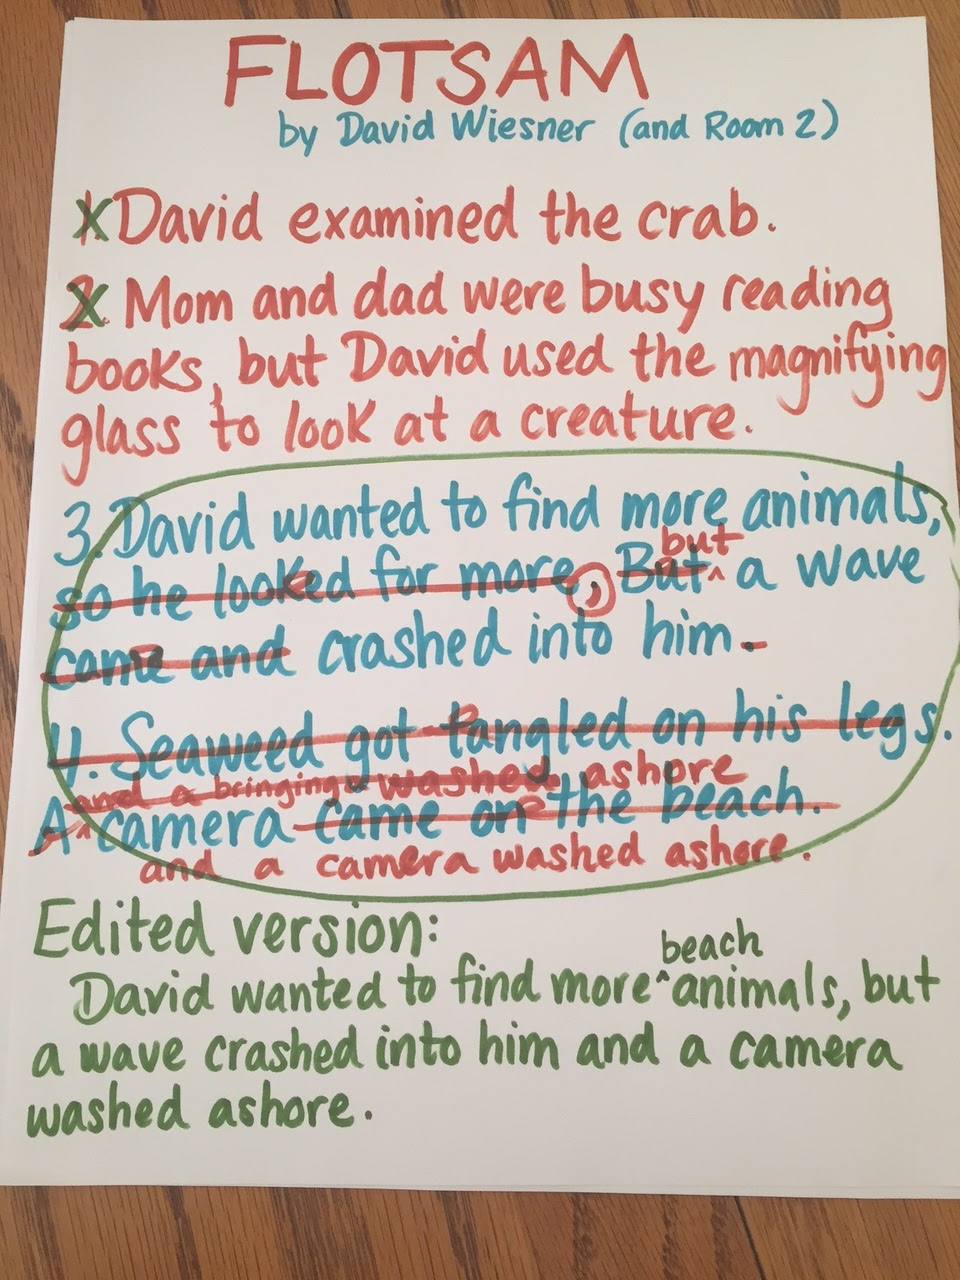 FLOTSAM
by David Wiesner (and Room 2)
1. David examined the crab.
2. Mom and dad were busy reading
books, but David used the magnifying
glass to look at a creature.
3. David wanted to find more animals,
but
so he looked for more, But ^ a wave
came and crashed into him.
4. Seaweed got tangled on his legs.
and a bringing washed ashore
A ^ camera came on the beach.
and a camera washed ashore.
Edited version:
beach
David wanted to find more ^ animals, but
a wave crashed into him and a camera
washed ashore.